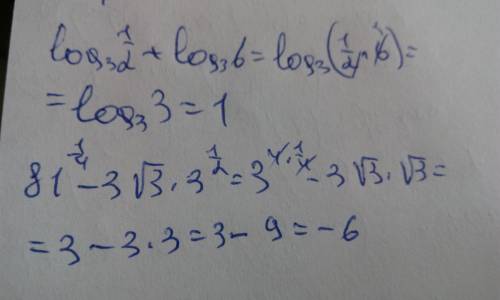 log₃ 1/2 + log₃ 6 = log₃(1/2 · 6) =
= log₃ 3 = 1
81^(1/4) − 3√3 · 3^(1/2) = 3^(4 · 1/4) − 3√3 · √3 =
= 3 − 3 · 3 = 3 − 9 = −6